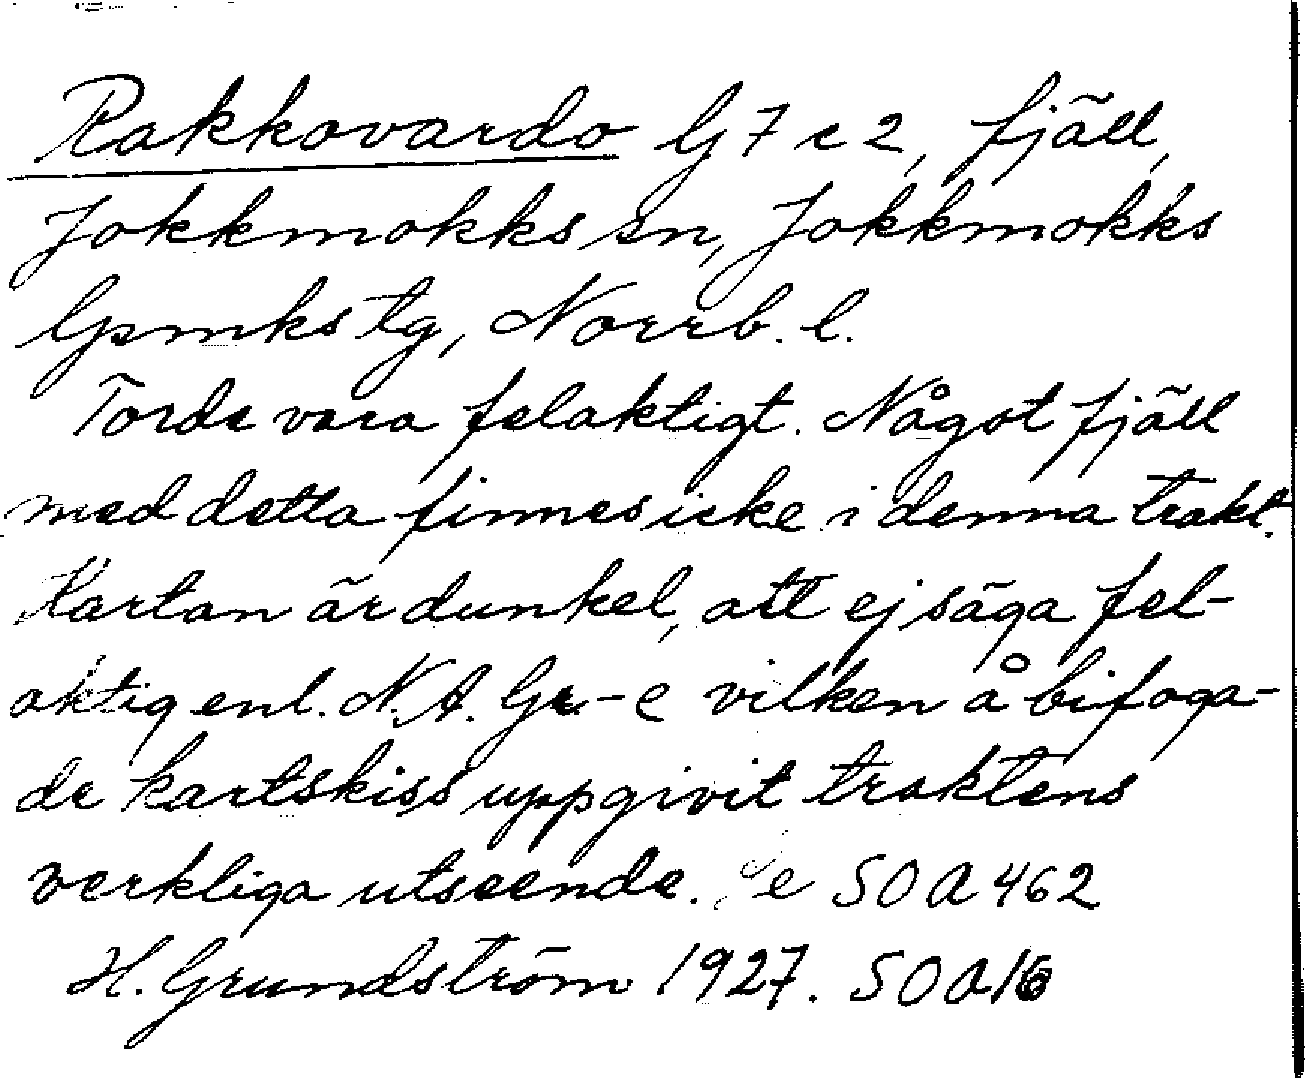 Rakkovardo G 7 c 2, fjäll,
Jokkmokks sn, Jokkmokks
lpmks tg, Norrb. l.
Torde vara felaktigt. Något fjäll
med detta finnes icke i denna trakt.
Kartan är dunkel, att ej säga fel-
aktig enl. N. A. Gr-e vilken å bifoga-
de kartskiss uppgivit traktens
verkliga utseende. Se SOA 462
H. Grundström 1927. SOA 16